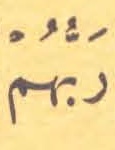 رَبُّهُمْ